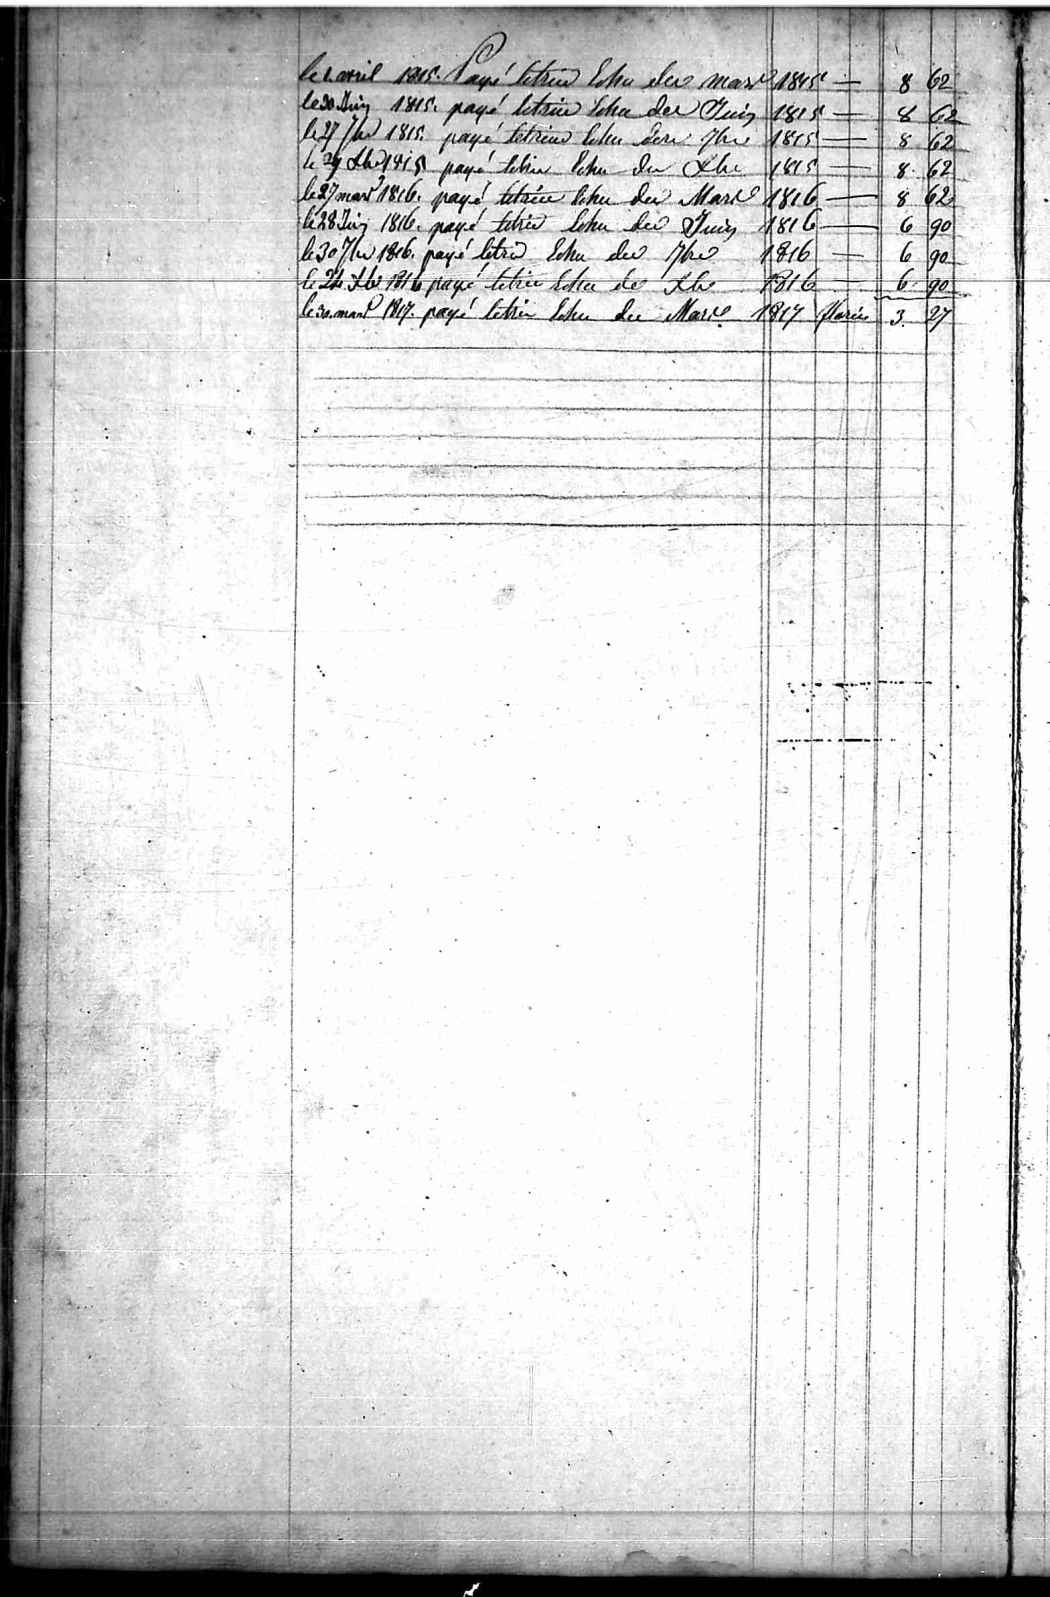 le 1 avril 1815. Payé letrim Echu du mars 1815 — 8 62
le 30 Juin 1815. payé letrim Echu du Juin 1815 — 8 62
le 27 7bre 1815. payé letrim Echu 7bre 1815 — 8 62
le 29 Xbre 1815 payé letrim Echu du Xbre 1815 — 8 62
le 27 mars 1816. payé letrim Echu du Mars 1816 — 8 62
le 28 Juin 1816. payé letrim Echu du Juin 1816 — 6 90
le 30 7bre 1816. payé letrim Echu du 7bre 1816 — 6 90
le 24 Xbre 1816 payé letrim Echu de Xbre 1816 — 6 90
le 30 mars 1817. payé letrim Echu du Mars 1817 florins 3. 27